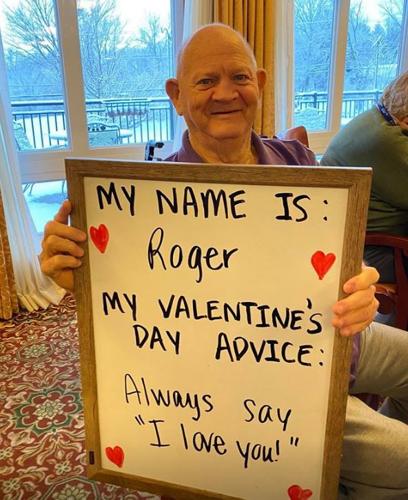 MY NAME IS:
Roger
MY VALENTINE'S
DAY ADVICE:
Always say
"I love you!"